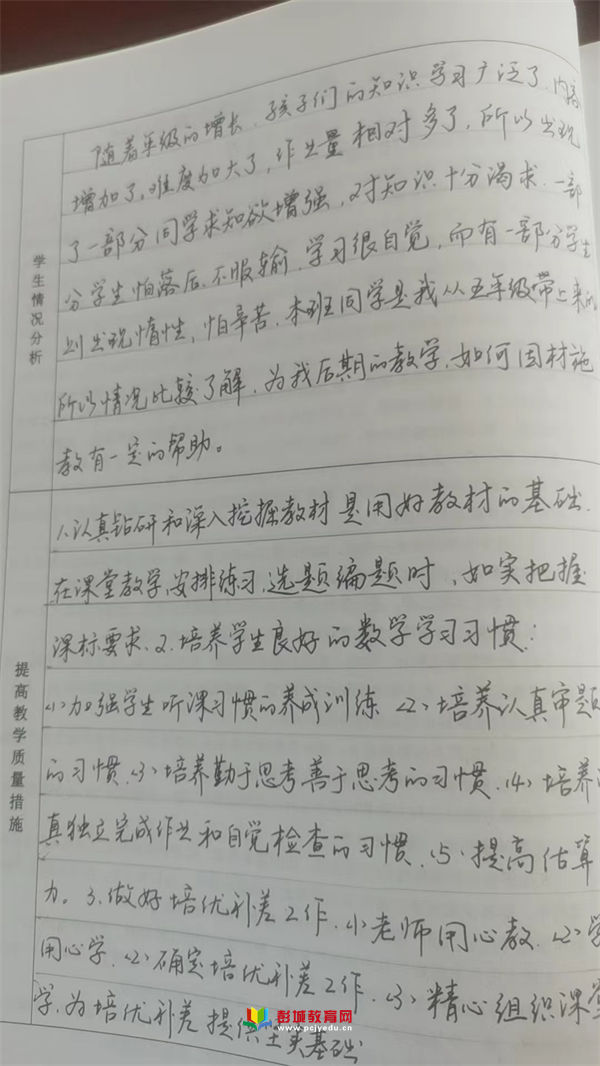 学生情况分析
随着年级的增长,孩子们的知识学习广泛了,内容
增加了,难度加大了,作业量相对多了,所以出现
了一部分同学求知欲增强,对知识十分渴求,一部
分学生怕落后,不服输,学习很自觉,而有一部分学生
则出现惰性,怕辛苦,本班同学是我从五年级带上来的
所以情况比较了解,为我后期的教学,如何因材施
教有一定的帮助。
提高教学质量措施
1.认真钻研和深入挖掘教材是用好教材的基础.
在课堂教学,安排练习,选题编题时,如实把握
课标要求.2.培养学生良好的数学学习习惯:
(1)加强学生听课习惯的养成训练 (2)培养认真审题
的习惯.(3)培养勤于思考善于思考的习惯.(4)培养
真独立完成作业和自觉检查的习惯.(5)提高估算
力。3.做好培优补差工作.(1)老师用心教.(2)学
用心学.(2)确定培优补差工作.(3)精心组织课堂
学,为培优补差提供坚实基础
彭城教育网
www.pcjyedu.cn